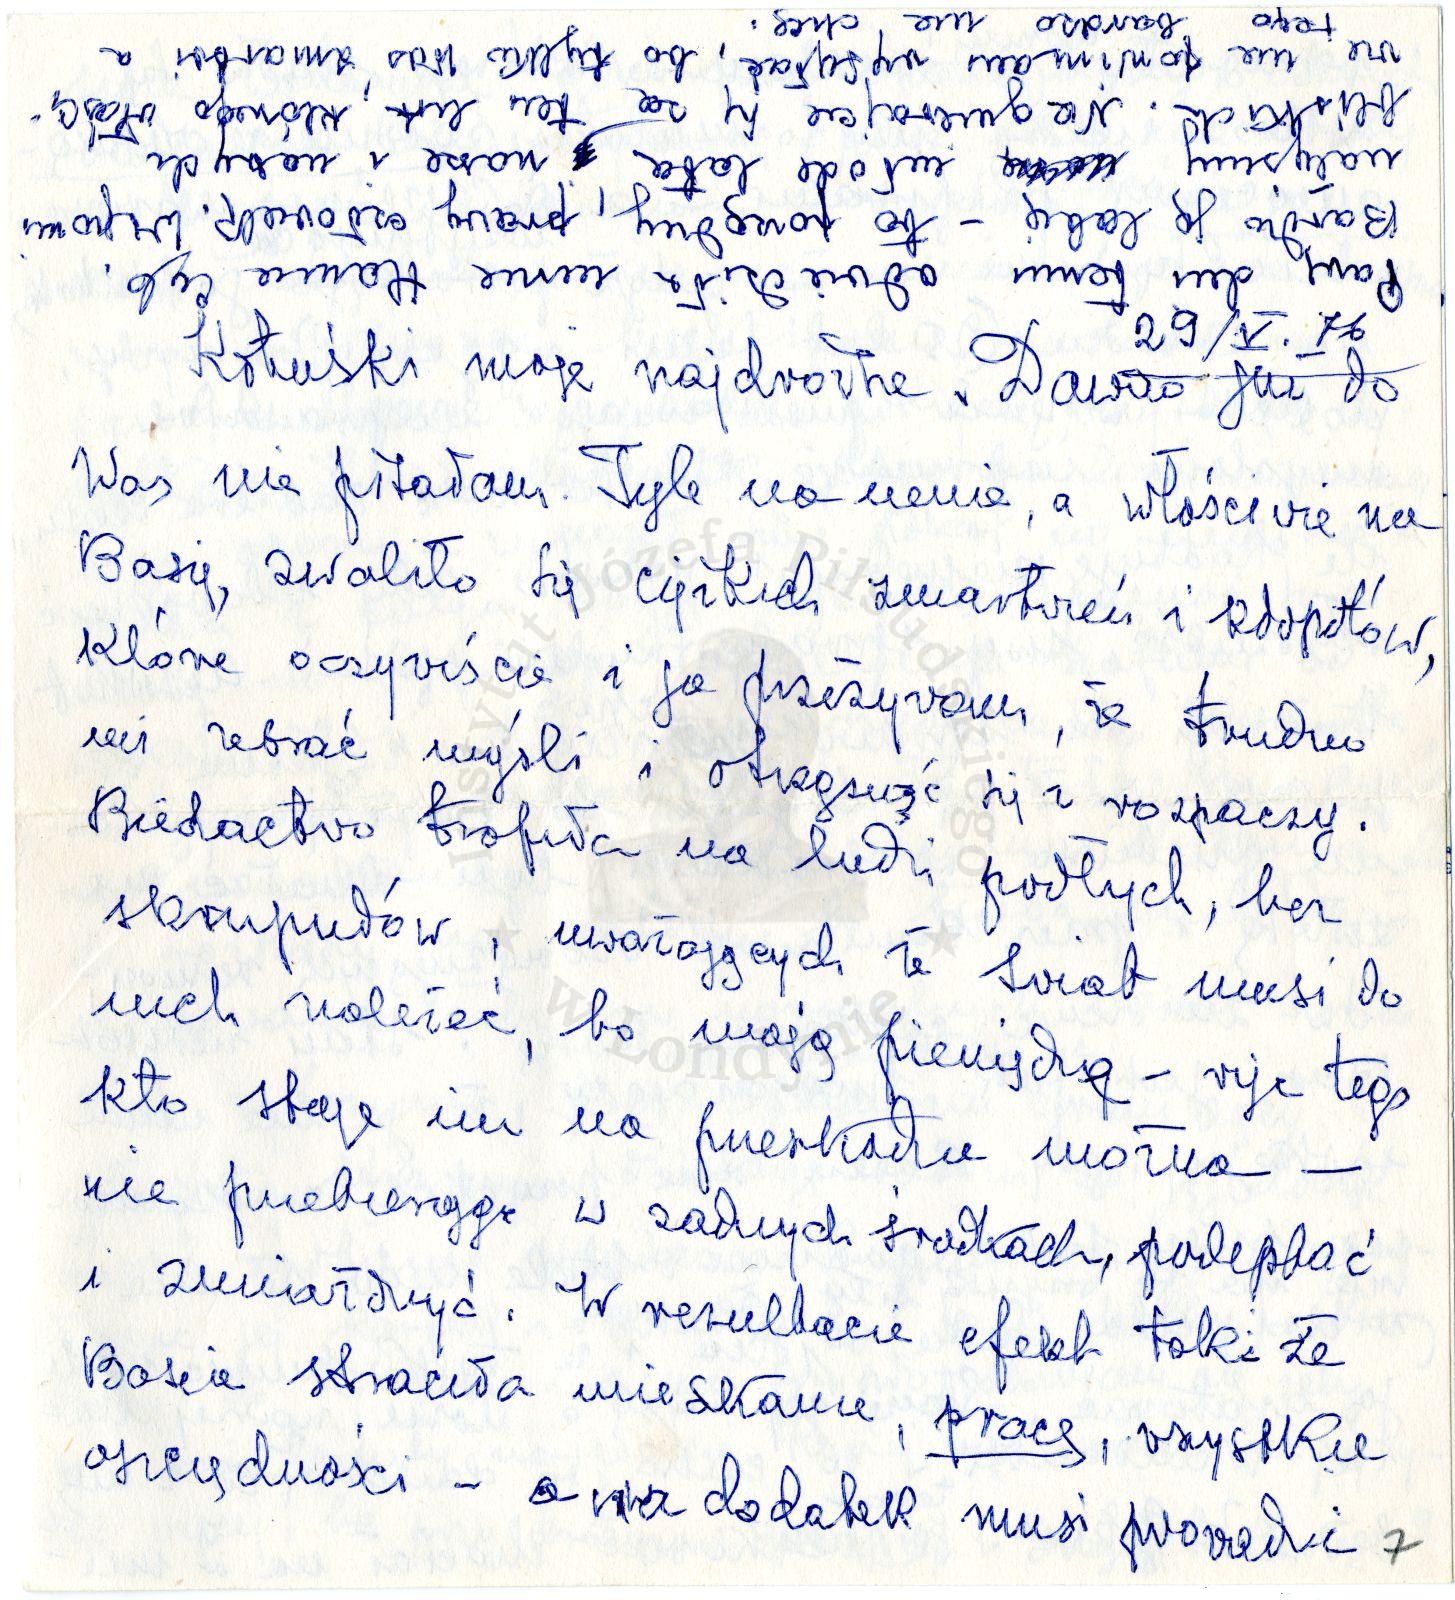 29/V.76
Kotuśki moje najdroższe. Dawno już do
Was nie pisałam. Tyle na mnie, a właściwie na
Basię, zwaliło się ciężkich zmartwień i kłopotów,
które oczywiście i ja przeżywam, że trudno
mi zebrać myśli i otrząsnąć się z rozpaczy.
Biedactwo trafiła na ludzi podłych, bez
skrupułów, uważających że świat musi do
nich należeć, bo mają pieniądze – więc tego
kto staje im na przeszkodzie można –
nie przebierając w żadnych środkach, podeptać
i zmiażdżyć. W rezultacie efekt taki że
Basia straciła mieszkanie, pracę, wszystkie
oszczędności – a na dodatek musi prowadzić
7
Parę dni temu odwiedziła mnie Hania
Bardzo ją lubię – to porządny, prawy człowiek.
młode lata nasze i naszych
bliskich. Nie gniewajcie się za ten list, którego właści-
wie nie powinnam wysyłać, bo tylko Was zmartwi a
tego bardzo nie chcę.
Instytut Józefa Piłsudskiego
w Londynie